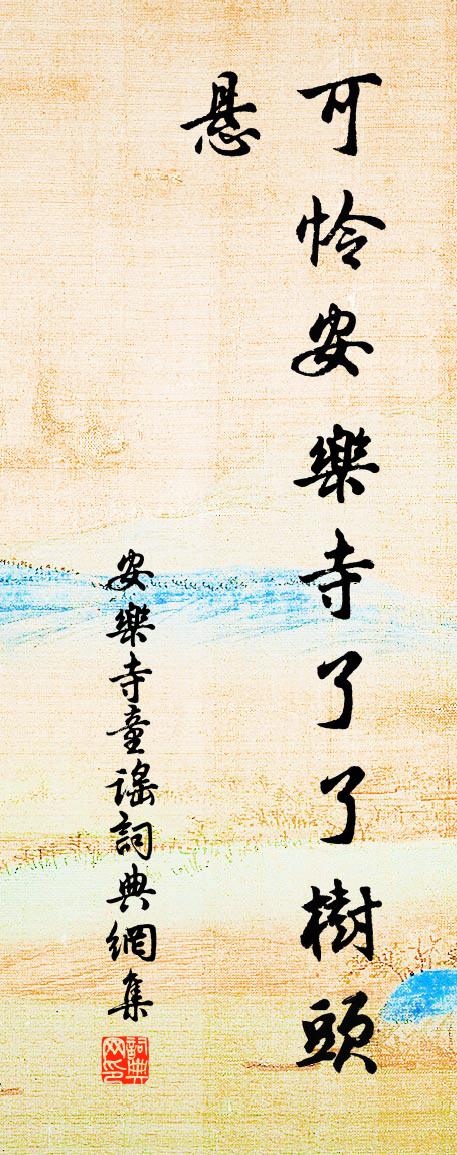 可怜安樂寺了了樹頭
悬
安樂寺童謠詞典網集
詞典网印